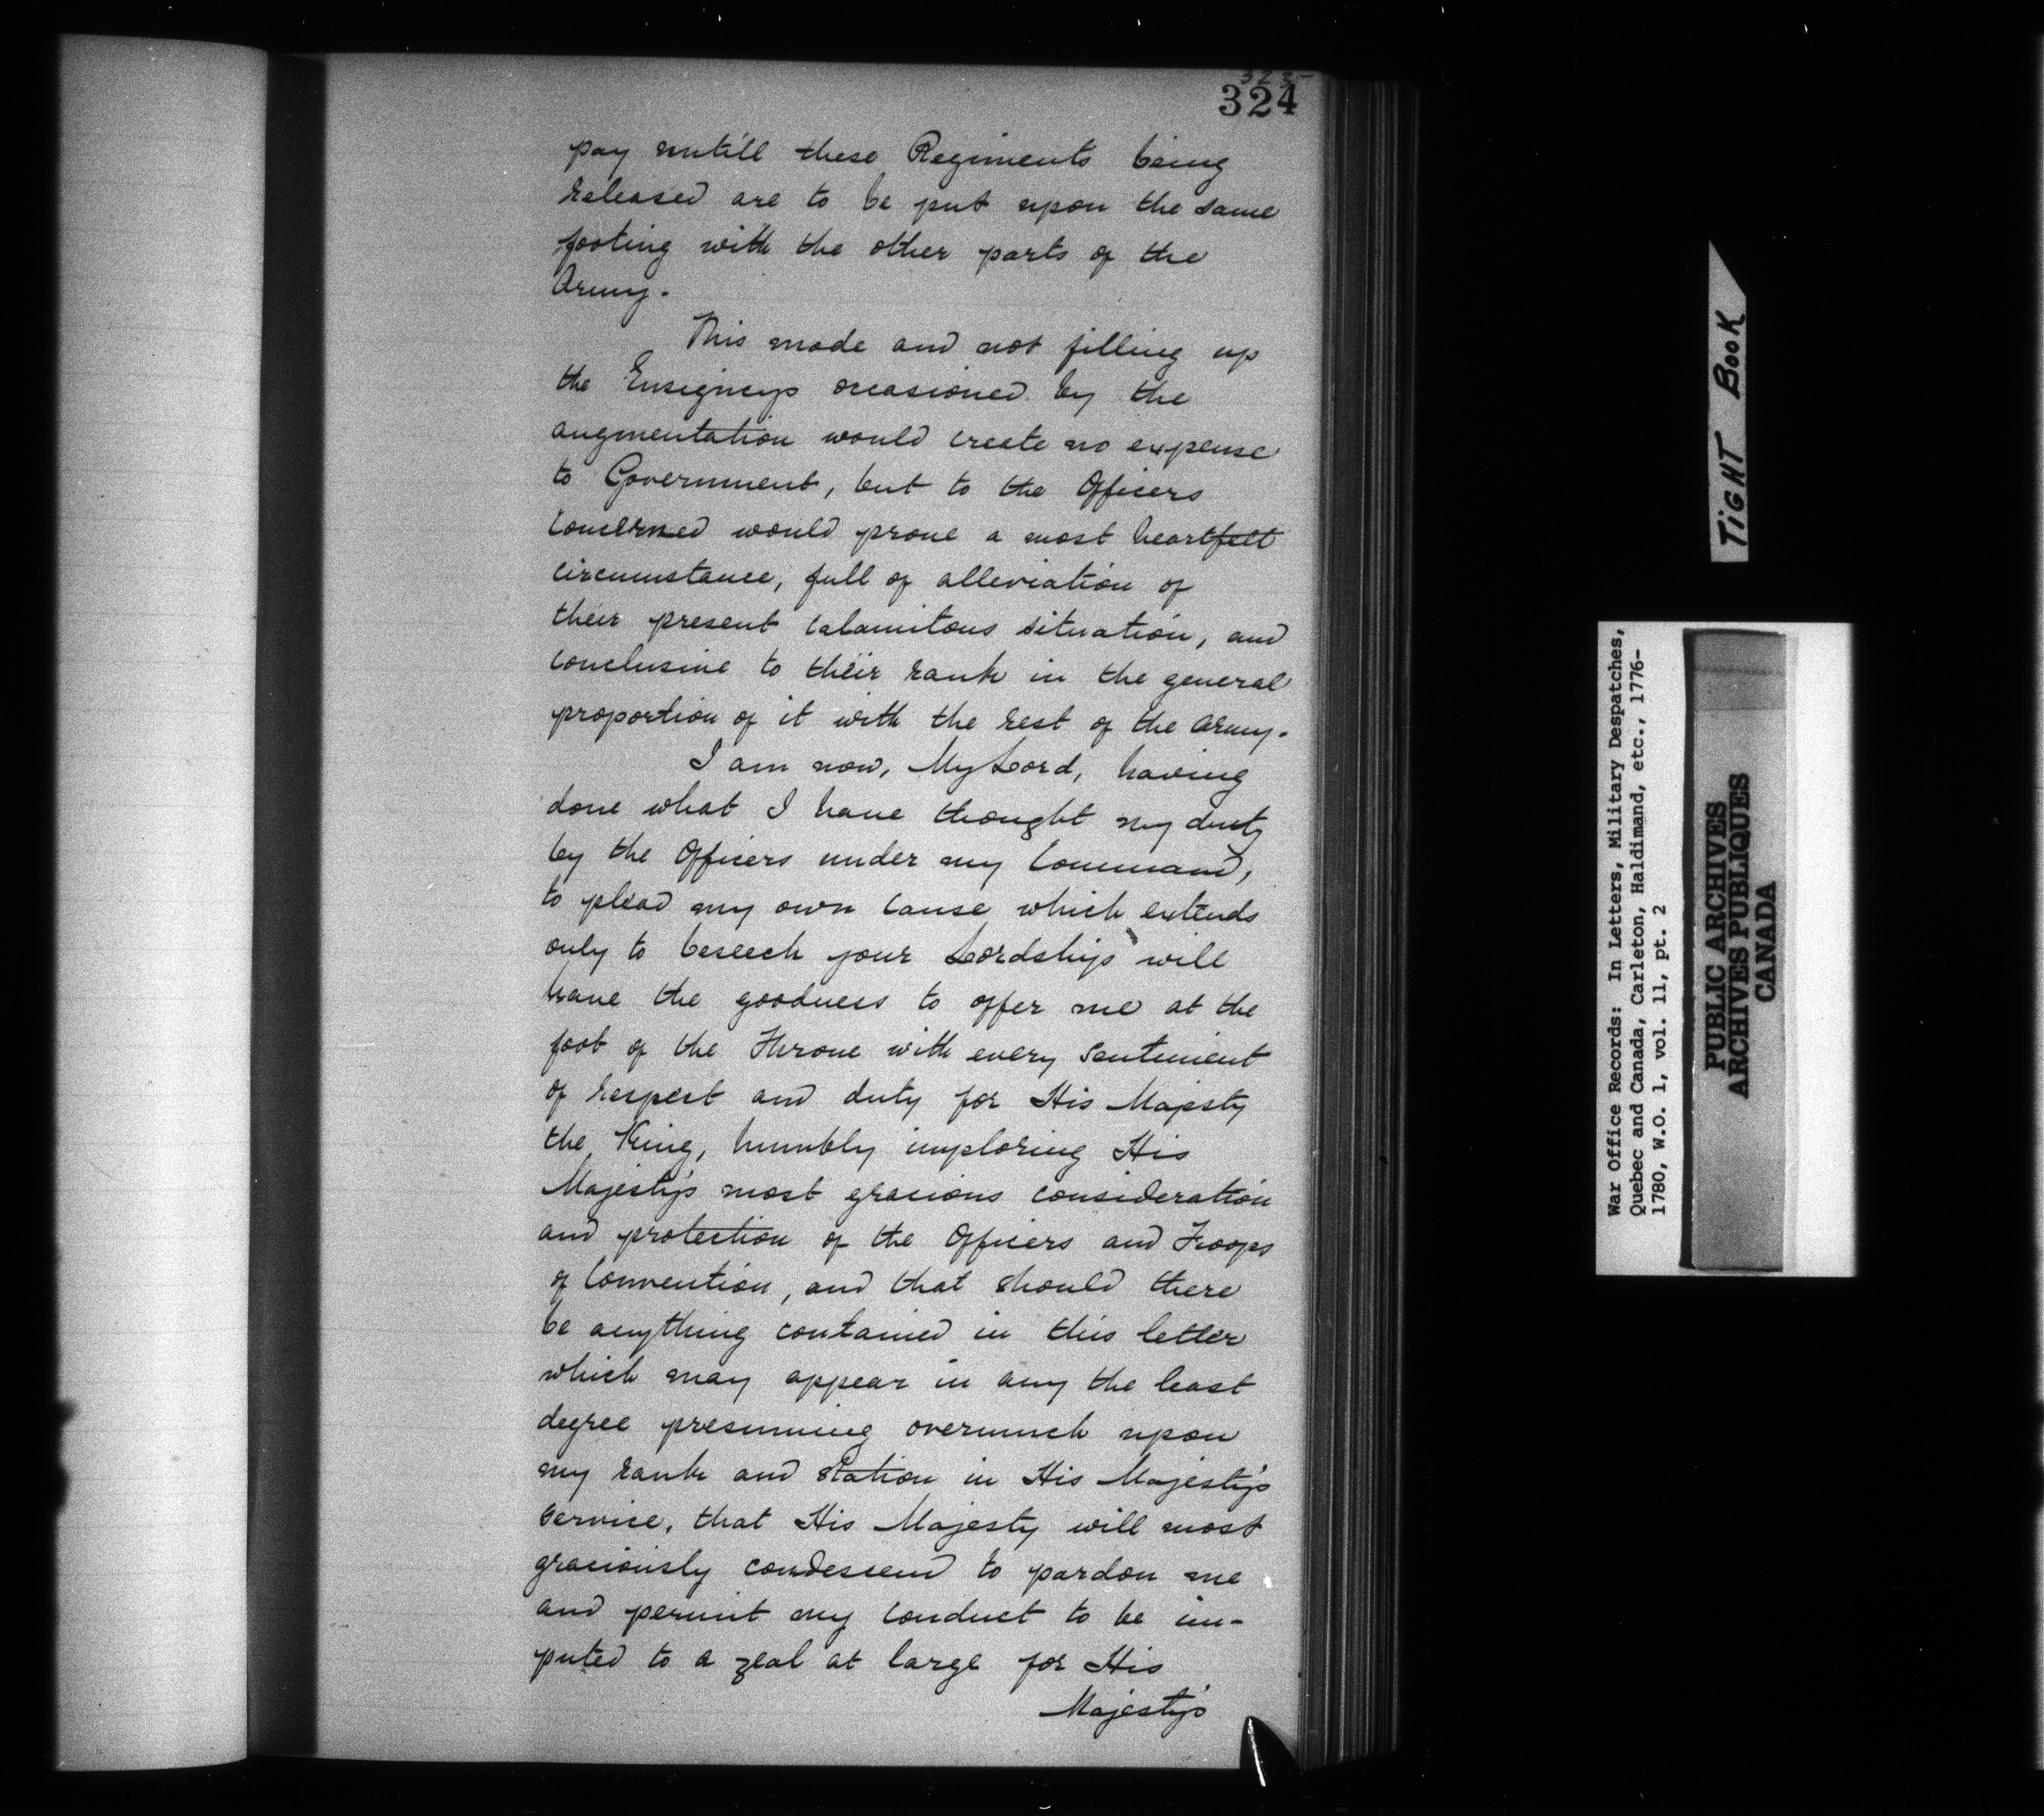 323-
324
pay untill these Regiments being
released are to be put upon the same
footing with the other parts of the
Army.
This mode and not filling up
the Ensigncys occasioned by the
augmentation would create no expense
to Government, but to the Officers
concerned would prove a most heartfelt
circumstance, full of alleviation of
their present calamitous situation, and
conclusive to their rank in the general
proportion of it with the rest of the Army.
I am now, My Lord, having
done what I have thought my duty
by the Officers under my Command,
to plead my own cause which extends
only to beseech your Lordship will
have the goodness to offer me at the
foot of the Throne with every sentiment
of respect and duty for His Majesty
the King, humbly imploring His
Majesty's most gracious consideration
and protection of the Officers and Troops
of Convention, and that should there
be anything contained in this letter
which may appear in any the least
degree presuming overmuch upon
my rank and station in His Majesty's
service, that His Majesty will most
graciously condescend to pardon me
and permit my conduct to be im-
puted to a zeal at large for His
Majesty's
TIGHT BOOK
War Office Records: In Letters, Military Despatches,
Quebec and Canada, Carleton, Haldimand, etc., 1776-
1780, W.O. 1, vol. 11, pt. 2
PUBLIC ARCHIVES
ARCHIVES PUBLIQUES
CANADA